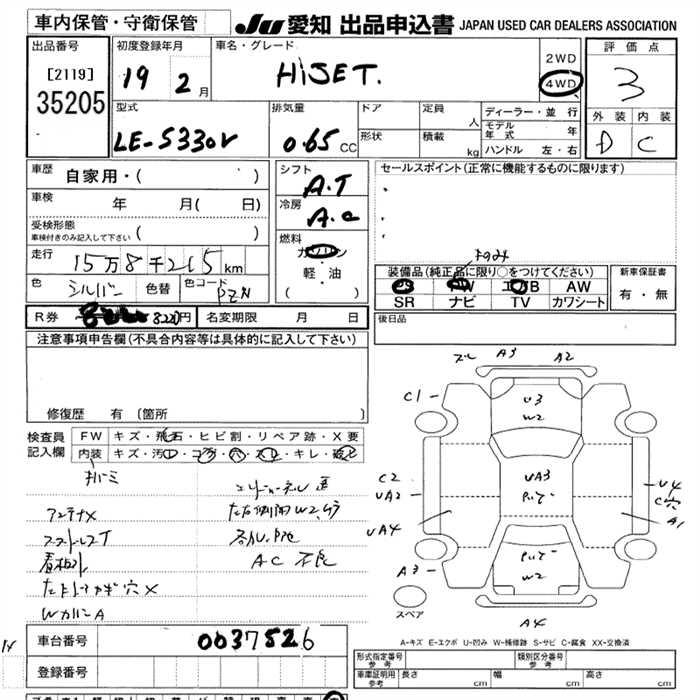 車内保管・守衛保管
JU 愛知 出品申込書 JAPAN USED CAR DEALERS ASSOCIATION
出品番号
[2119]
35205
初度登録年月
19 2月
車名・グレード
HiJET.
2WD
4WD
評価点
3
外装 内装
D C
型式
LE-S330V
排気量
0.65 CC
ドア
形状
定員
人
積載
kg
ディーラー・並行
モデル年式 年
ハンドル 左・右
車歴 自家用・( )
車検 年 月( 日)
受検形態
車検付きのみ記入して下さい ( )
走行 15万8千215km
色 シルバー 色替 色コード PZN
シフト
A.T
冷房
A.C
燃料
ガソリン
軽・油
( )
セールスポイント(正常に機能するものに限ります)
装備品(純正品に限り○をつけてください)
PS PW エアB AW
SR ナビ TV カワシート
新車保証書
有・無
R券 8220円 名変期限 月 日
後日品
注意事項申告欄(不具合内容等は具体的に記入して下さい)
修復歴 有 [箇所
検査員
記入欄
FW キズ・飛石・ヒビ割・リペア跡・X要
内装 キズ・汚レ・コゲ・穴・スレ・キレ・破レ
アンテナX
スタートレスT
看板外
WカバーA
AC不良
ズレ A3 A2
C1
U3
W2
C2
UA2
UA3
U4
C穴
A1
UA4
A3
W2
スペア
A4
A-キズ E-エクボ U-凹み W-補修跡 S-サビ C-腐食 XX-交換済
14
車台番号 0037526
登録番号
形式指定番号 参考
類別区分番号 参考
車庫証明用 参考 長さ cm 幅 cm 高さ cm